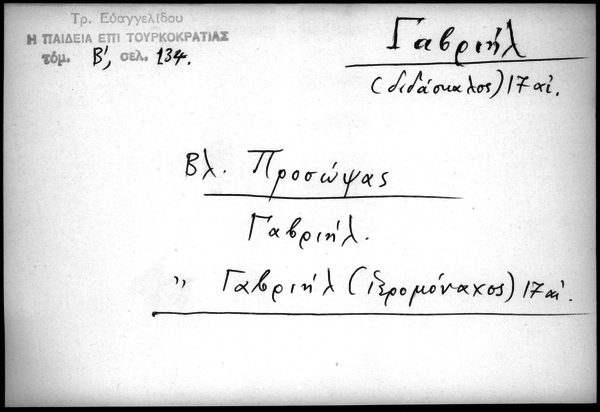 Τρ. Εὐαγγελίδου
Η ΠΑΙΔΕΙΑ ΕΠΙ ΤΟΥΡΚΟΚΡΑΤΙΑΣ
τόμ. Β', σελ. 134.
Γαβριήλ
(διδάσκαλος) 17 αἰ.
Βλ. Προσώψας
Γαβριήλ.
" Γαβριήλ (ἱερομόναχος) 17 αἰ.